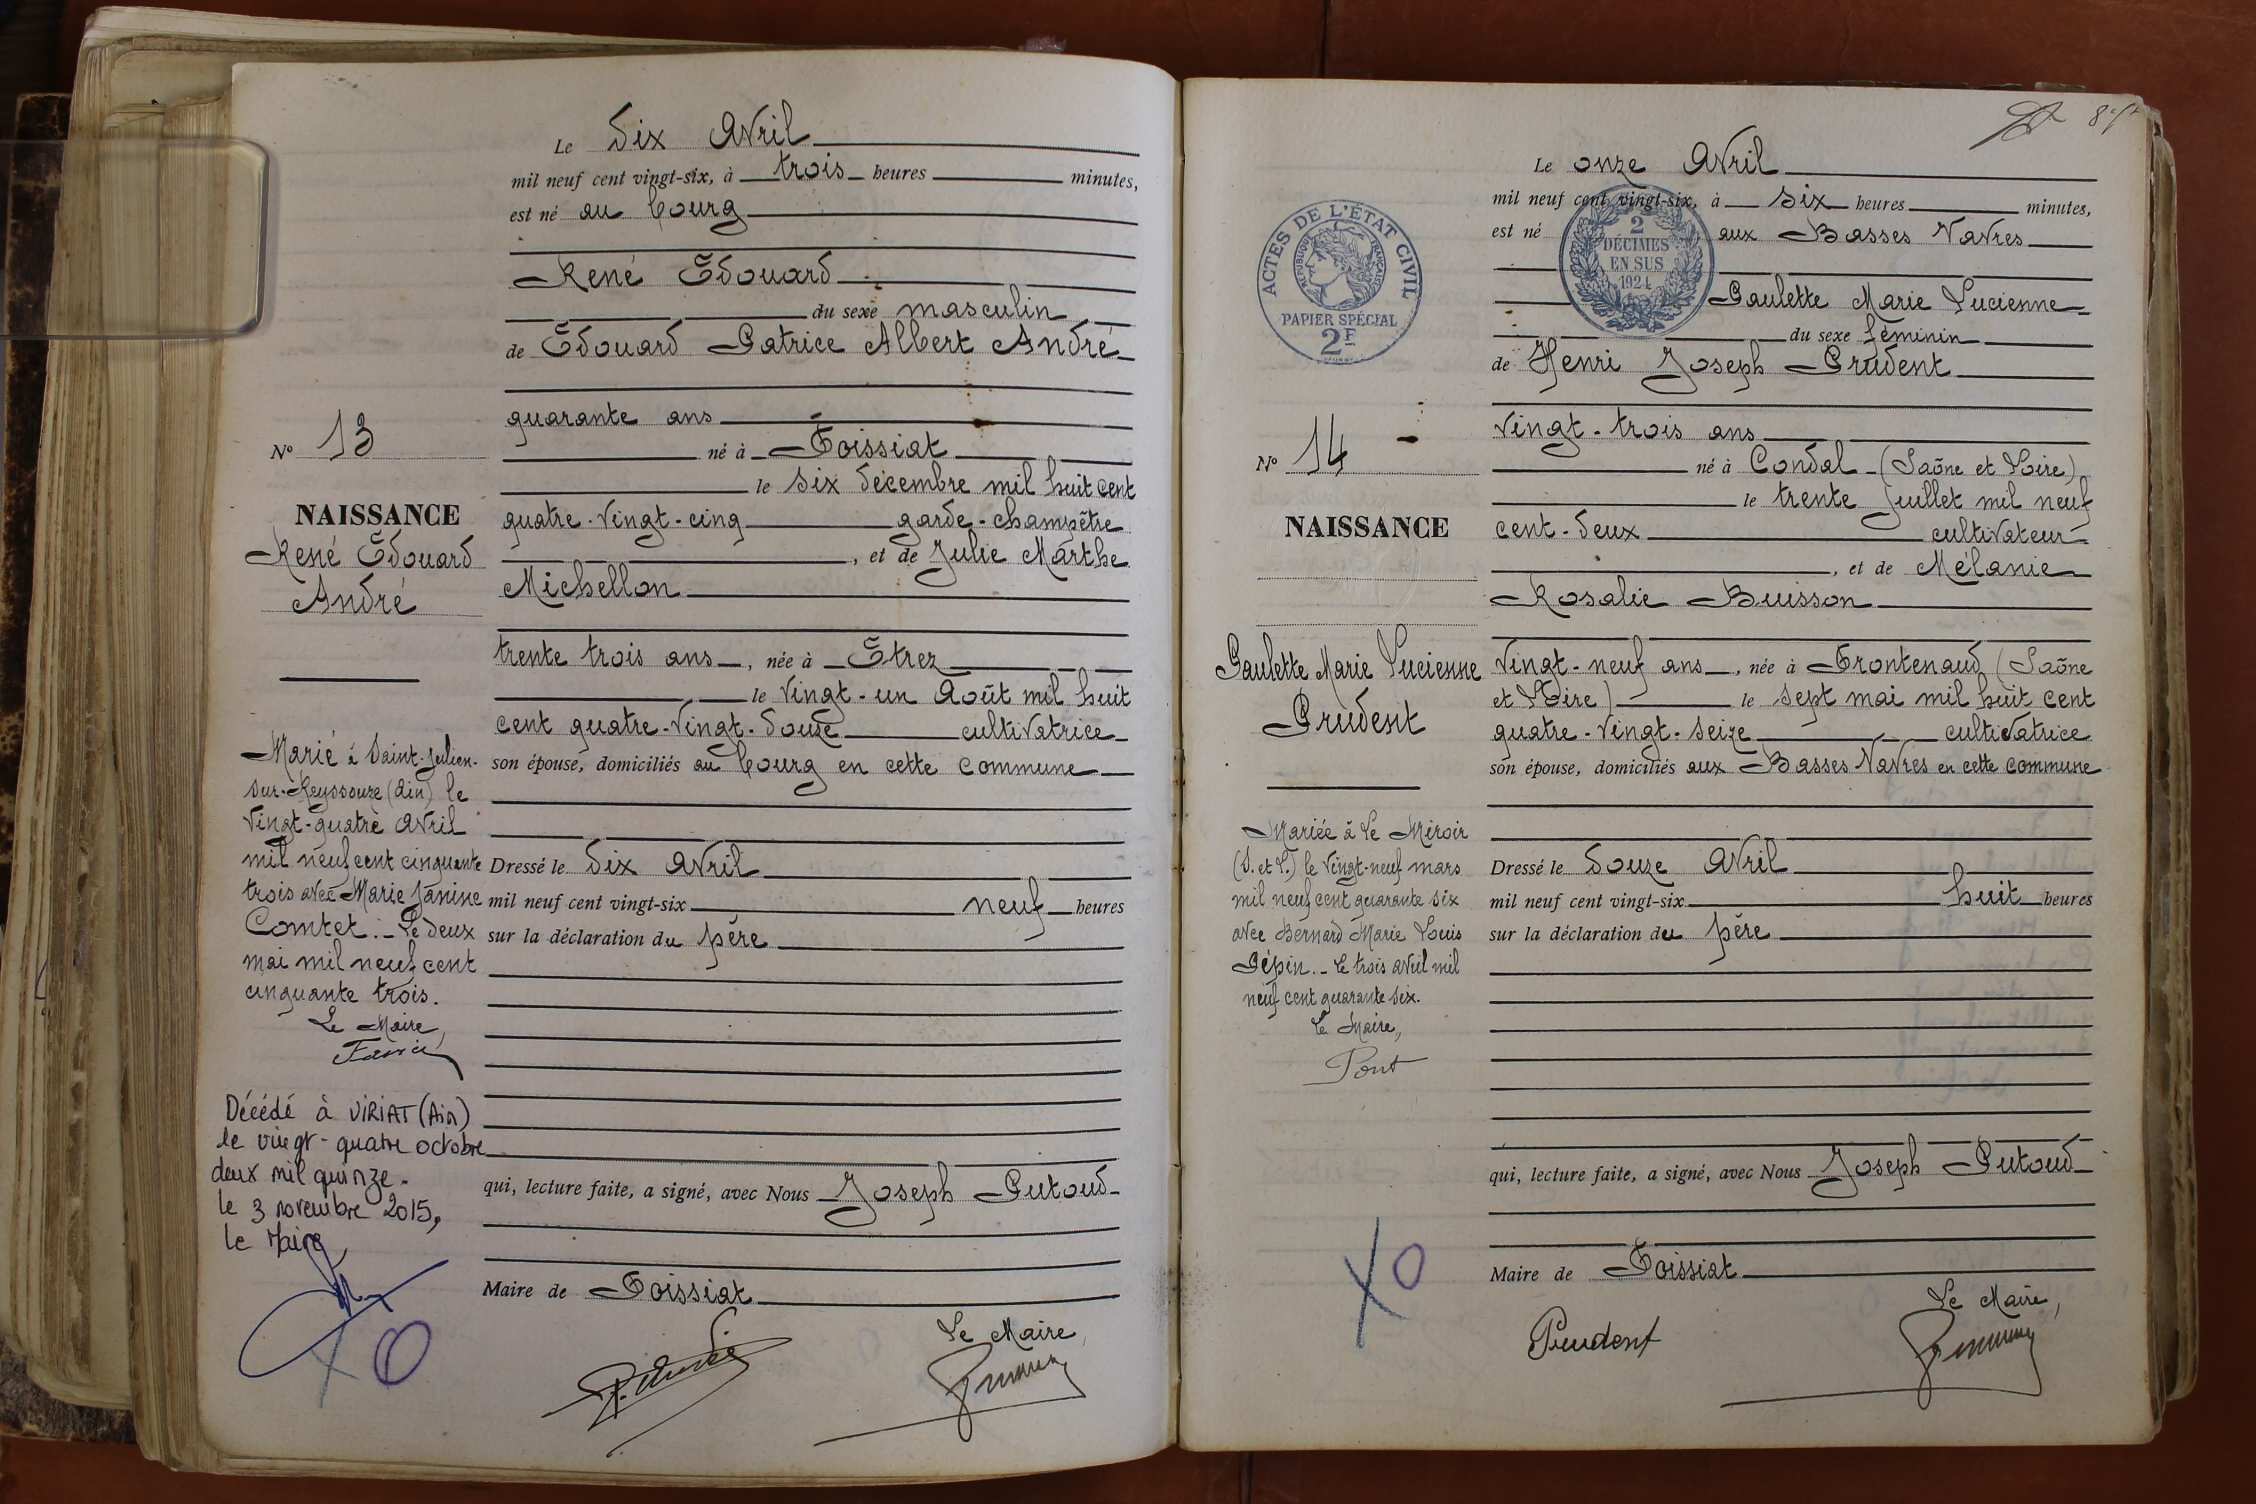 Le dix Avril
mil neuf cent vingt-six, à trois heures minutes,
est né au bourg
René Edouard
du sexe masculin
de Edouard Patrice Albert André
quarante ans
né à Foissiat
le six décembre mil huit cent
quatre-vingt-cinq garde-champêtre
, et de Julie Marthe
Michellon
trente trois ans, née à Etrez
le vingt-un Août mil huit
cent quatre-vingt-douze cultivatrice
son épouse, domiciliés au bourg en cette commune
Dressé le dix Avril
mil neuf cent vingt-six neuf heures
sur la déclaration du père
qui, lecture faite, a signé, avec Nous Joseph Putoud
Maire de Foissiat
Le Maire,
No 13
NAISSANCE
René Edouard
André
Marié à Saint-Julien-
sur-Reyssouze (Ain) le
vingt-quatre avril
mil neuf cent cinquante
trois avec Marie Janine
Comtet._ Le deux
mai mil neuf cent
cinquante trois.
Le Maire,
Décédé à VIRIAT (Ain)
le vingt-quatre octobre
deux mil quinze.
le 3 novembre 2015,
le Maire
Le onze Avril
mil neuf cent vingt-six, à six heures minutes,
est né aux Basses Vavres
Paulette Marie Lucienne
du sexe féminin
de Henri Joseph Prudent
vingt-trois ans
né à Condal (Saône et Loire)
le trente Juillet mil neuf
cent-deux cultivateur
, et de Mélanie
Rosalie Buisson
vingt-neuf ans, née à Frontenaud (Saône
et Loire) le sept mai mil huit cent
quatre-vingt-seize cultivatrice
son épouse, domiciliés aux Basses Vavres en cette commune
Dressé le douze Avril
mil neuf cent vingt-six huit heures
sur la déclaration du père
qui, lecture faite, a signé, avec Nous Joseph Putoud
Maire de Foissiat
Le Maire,
Prudent
ACTES DE L'ÉTAT CIVIL
RÉPUBLIQUE FRANÇAISE
PAPIER SPÉCIAL
2F
2
DÉCIMES
EN SUS
1924
No 14
NAISSANCE
Paulette Marie Lucienne
Prudent
Mariée à Le Miroir
(S. et L.) le vingt-neuf mars
mil neuf cent quarante six
avec Bernard Marie Louis
Pépin._ Le trois avril mil
neuf cent quarante six.
Le Maire,
Pont